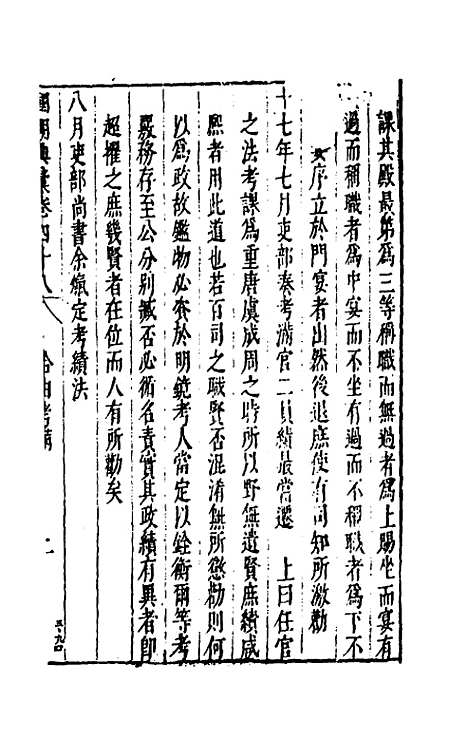 課其殿最第爲三等稱職而無過者爲上賜坐而宴有
過而稱職者爲中宴而不坐有過而不稱職者爲下不
序立於門宴者出然後退庶使有司知所激勸
十七年七月吏部奏考滿官二員績最當遷　上曰任官
之法考課爲重唐虞成周之時所以野無遺賢庶績咸
熙者用此道也若百司之職賢否混淆無所懲勸則何
以爲政故鑑物必資於明鏡考人當定以銓衡爾等考
覈務存至公分別臧否必循名責實其政績有異者即
超擢之庶幾賢者在位而人有所勸矣
八月吏部尚書余熂定考績法
國朝典彙卷四十八
二